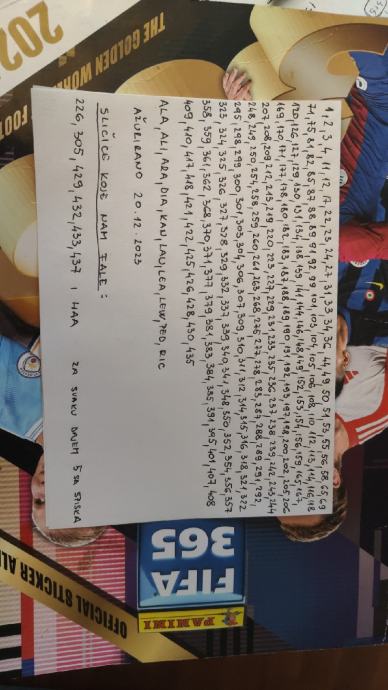 1,2,3,4,11,12,17,22,23,24,27,31,33,34,36,44,49,50,51,53,55,56,58,65,69
71,75,81,82,85,87,88,89,91,92,99,101,103,104,105,106,108,110,112,113,114,116,118
120,126,127,129,130,131,134,138,139,141,144,146,148,149,152,153,154,156,159,165,167,
169,170,171,177,178,180,182,183,187,188,189,190,191,192,193,197,198,200,202,205,206
207,208,209,212,215,219,220,223,227,229,231,233,235,236,237,238,239,242,243,244
248,249,250,254,258,259,260,261,263,268,276,277,278,283,287,288,289,291,292,
295,298,299,300,301,303,304,306,307,309,310,311,312,314,315,316,318,321,322
323,324,325,326,327,328,329,332,337,339,340,341,348,350,352,354,356,357
358,359,361,362,368,370,371,377,379,381,383,384,385,391,395,401,407,408
409,410,417,418,421,422,425,426,428,430,435
ALA, ALI, ARA, DIA, KAN, LAU, LEA, LEW, PED, RIC
AŽURIRANO 20.12.2023
SLIČICE KOJE NAM FALE:
226, 305, 429, 432, 433, 437 I HAA ZA SVAKU DAJEM 5 SA SPISKA
THE GOLDEN WORLD
FOOT
202
OFFICIAL STICKER AL
FIFA
365
PANINI